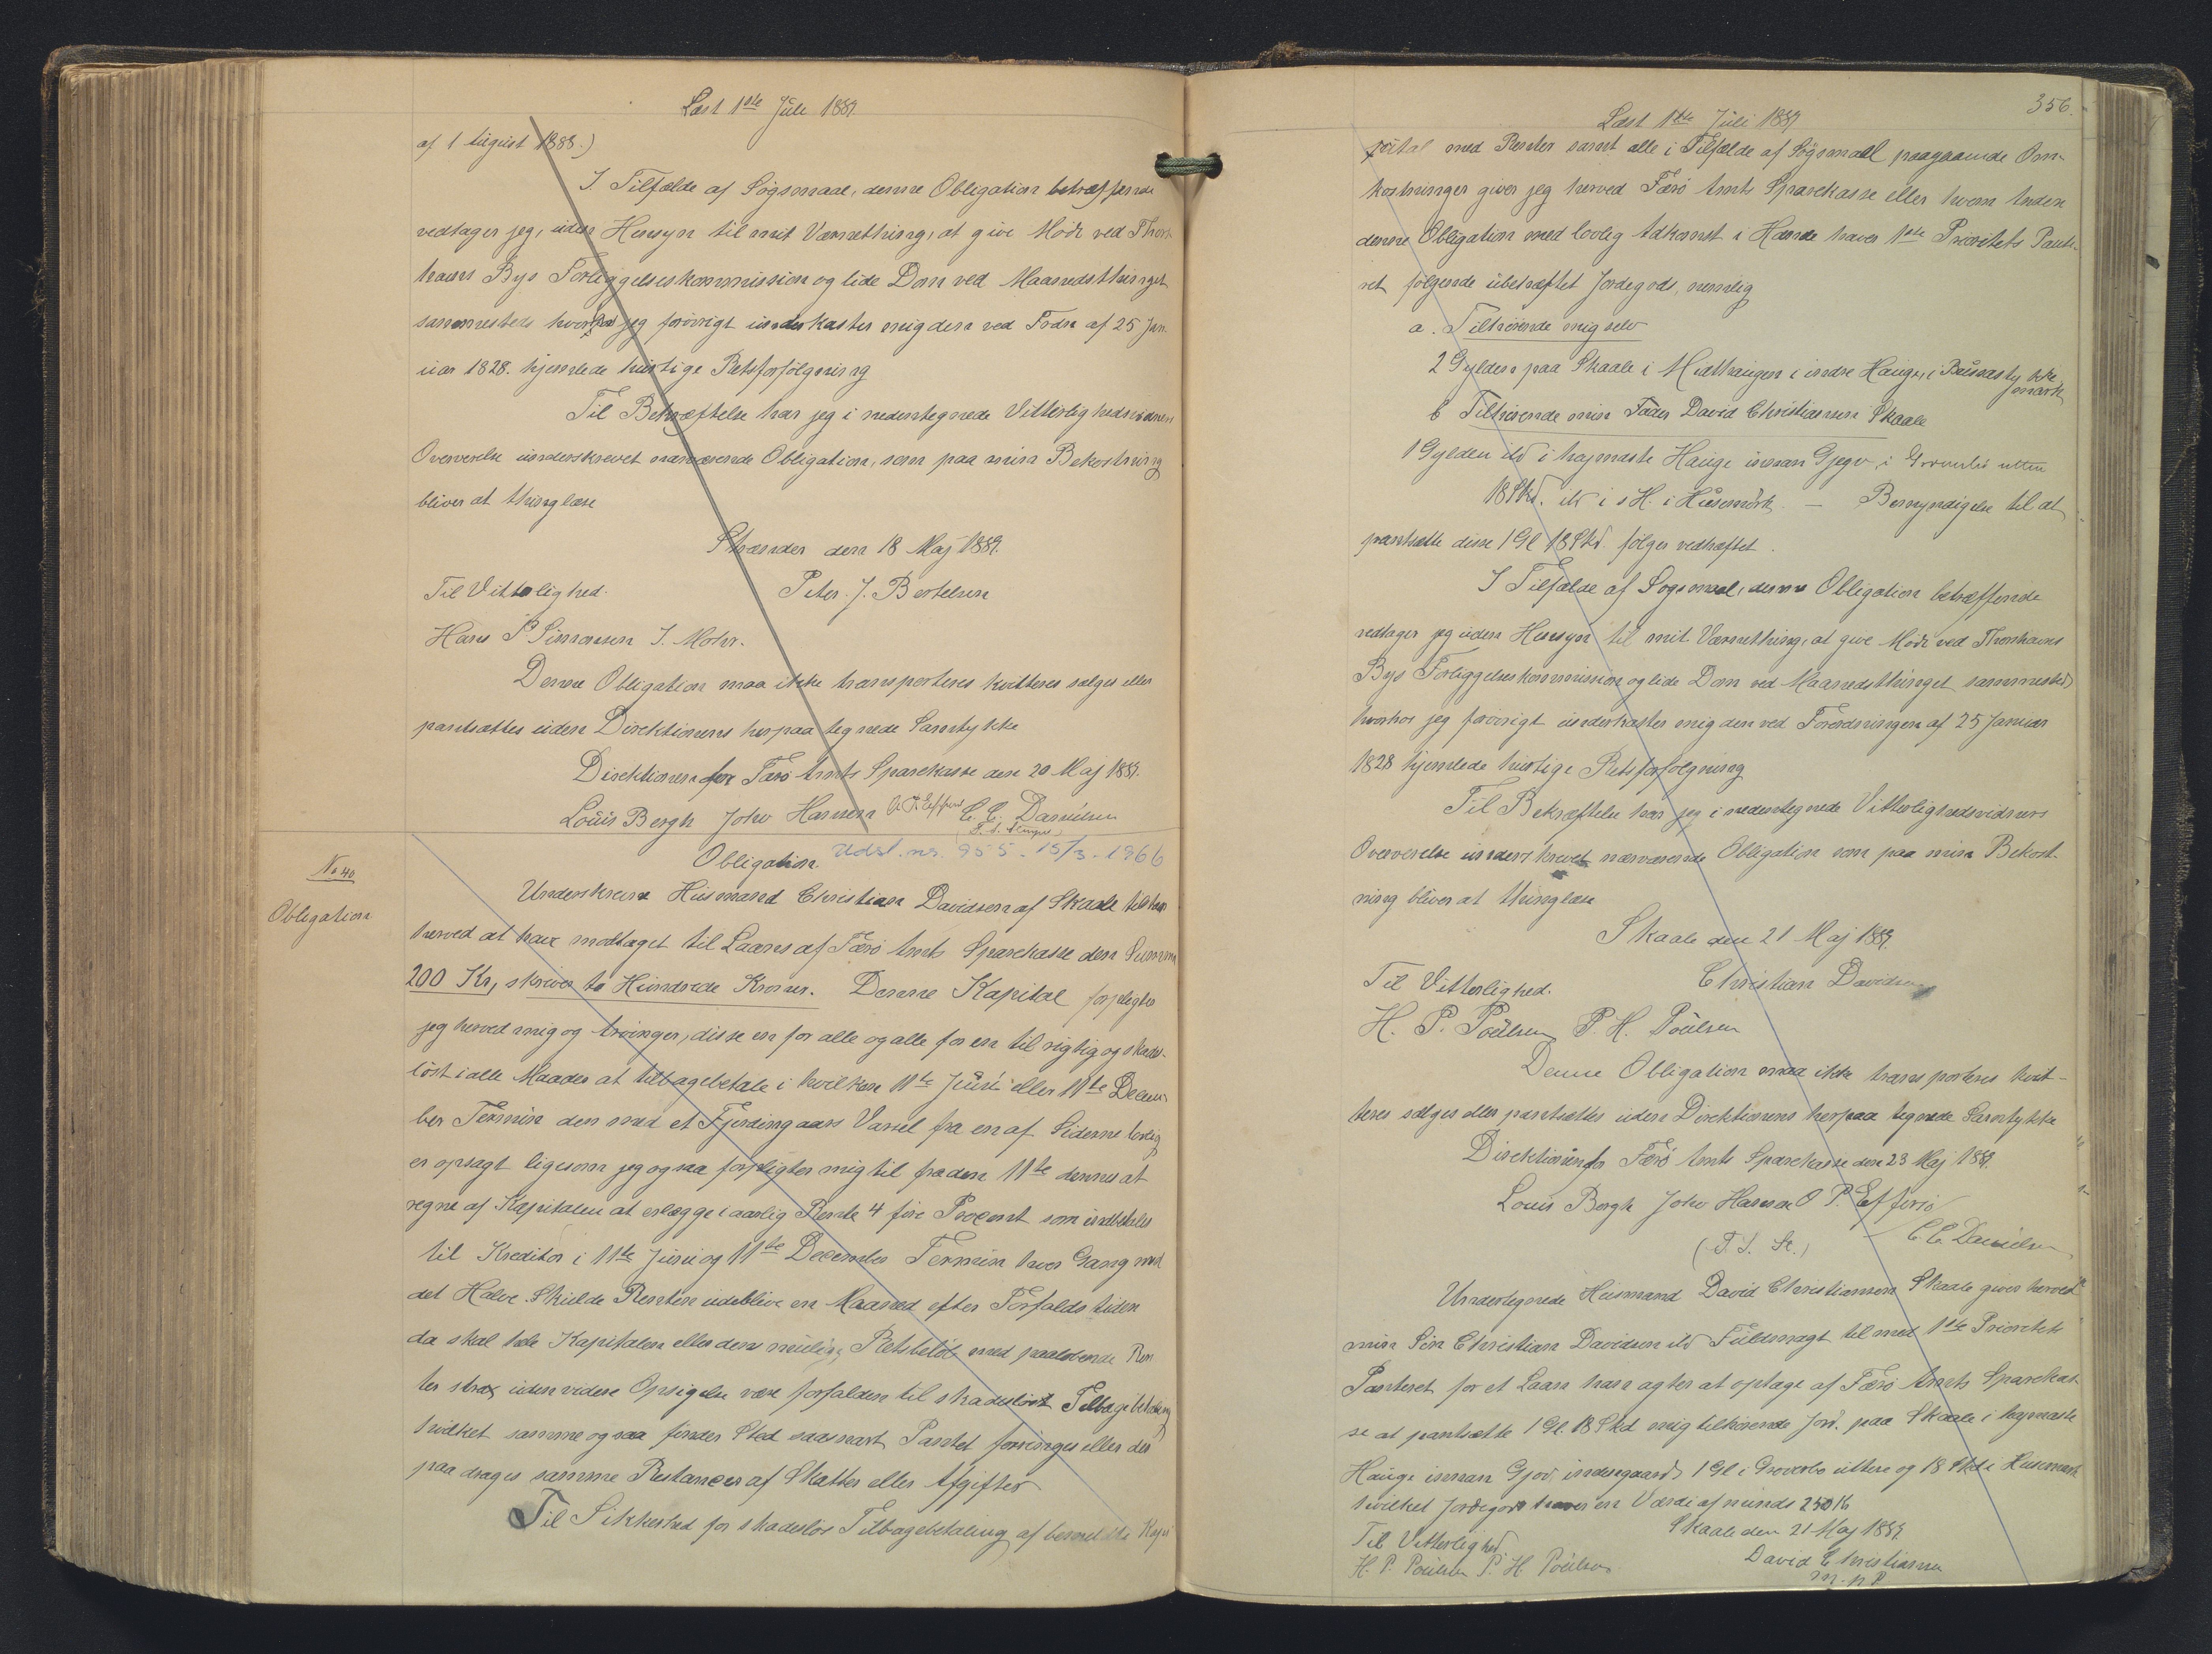 Læst 1ste Juli 1889.
af 1 August 1888.)
I Tilfælde af Søgsmaal, denne Obligation betræffende
vedtager jeg, uden Hensyn til mit Værnething, at give Møde ved Thors
havns Bys Forligelseskommission og lide Dom ved Maanedsthinget
sammesteds hvorhos jeg forövrigt underkaster mig den ved Frdn af 25 Jan
uar 1828. hjemlede hurtige Retsforfølgning
Til Bekræftelse har jeg i nedentegnede Vitterlighedsvidners
Overværelse underskrevet nærværende Obligation, som paa min Bekostning
bliver at thinglæse
Strænder den 18 Maj 1889.
Til Vitterlighed. Peter. J. Bertelsen
Hans P Simonsen J. Mohr.
Denne Obligation maa ikke transporteres kvitteres sælges eller
pantsættes uden Direktionens herpaa tegnede Samtykke
Direktionen for Færö Amts Sparekasse den 20 Maj 1889.
Louis Bergh John Hansen O. P. Effersö C. C. Danielsen
Obligation. Udsl. nr. 955 - 15/3 - 1966
No 40
Obligation
Underskrevne Husmand Christian Davidsen af Skaale tilstaar
herved at have modtaget til Laans af Færö Amts Sparekasse den Summa
200 Kr, skriver to Hundrede Kroner. Denne Kapital forpligter
jeg herved mig og Arvinger, disse en for alle og alle for en til rigtig og skades-
löst i alle Maader at tilbagebetale i hvilken 11te Juni eller 11te Decem
ber Termin den med et Fjerdingaars Varsel fra en af Siderne lovlig
er opsagt ligesom jeg ogsaa forpligter mig til fra den 11te dennes at
regne af Kapitalen at erlægge i aarlig Rente 4 fire Procent som indbetales
til Kreditor i 11te Juni og 11te December Termin hver Gang med
det Halve. Skulde Renten udeblive en Maaned efter Forfaldstiden
da skal hele Kapitalen eller dens mulige Restbeløb med paaløbende Ren
ter strax uden videre Opsigelse være forfalden til skadesløst Tilbagebetaling
hvilket samme ogsaa finder Sted saasnart Pantet forringes eller der
paa drages samme Restancer af Skatter eller Afgifter
Til Sikkerhed for skadesløs Tilbagebetaling af bemeldte Kapi
356.
Læst 1ste Juli 1889
pital med Renter samt alle i Tilfælde af Sögsmaal paagaaende Om-
kostninger giver jeg herved Færö Amts Sparekasse eller hvem Anden
denne Obligation med lovlig Adkomst i Hænde haver 1ste Prioritets Pante
ret følgende ubehæftet Jordegods, nemlig
a. Tilhørende mig selv
2 Gylden paa Skaale i Midthaugen i indre Hauge, i
mark
b Tilhørende min Fader David Christiansen Skaale
1 Gylden ib i høgmaste Hauge innan Gjegv i uttere
18 Skd. ib i s H. i Husemörk. — Bemyndigelse til at
pantsætte disse 1 Gl 18 Skd. følger vedhæftet.
I Tilfælde af Søgsmaal, denne Obligation betræffende
vedtager jeg uden Hensyn til mit Værnething, at give Møde ved Thorshavns
Bys Forligelseskommission og lide Dom ved Maanedsthinget sammesteds
hvorhos jeg forövrigt underkaster mig den ved Forordningen af 25 Januar
1828 hjemlede hurtige Retsforfølgning
Til Bekræftelse har jeg i nedentegnede Vitterlighedsvidners
Overværelse underskrevet nærværende Obligation som paa min Bekost-
ning bliver at thinglæse
Skaale den 21 Maj 1889.
Til Vitterlighed. Christian Davidsen
H. P. Poulsen P. H. Poulsen
Denne Obligation maa ikke transporteres kvit-
teres sælges eller pantsættes uden Direktionens herpaa tegnede Samtykke
Direktionen for Færö Amts Sparekasse den 23 Maj 1889.
Louis Bergh John Hansen O P. Effersö
(T. S. St.) C. C. Danielsen
Undertegnede Husmand David Christiansen Skaale giver herved
min Søn Christian Davidsen ib Fuldmagt til med 1ste Prioritets
Panteret for et Laan han agter at optage af Færö Amts Sparekas
se at pantsætte 1 Gl. 18 Skd mig tilhørende Jord. paa Skaale i høgmaste
Hauge innan Gjov, innengaard 1 Gl i uttere og 18 Skd i Husemørk
hvilket Jordegods haver en Værdi af minds 250 K
Skaale den 21 Maj 1889.
Til Vitterlighed David Christiansen
H. P. Poulsen P. H. Poulsen m. p. P